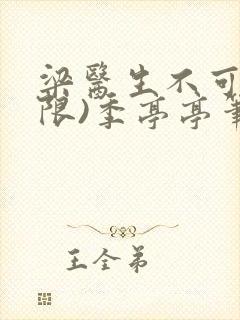 梁医生不可
限)季亭亭筆
王全弟